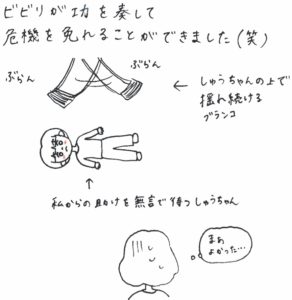 ビビリが功を奏して
危機を免れることができました(笑)
ぶらん
ぶらん
← しゅうちゃんの上で
揺れ続ける
ブランコ
私からの助けを無言で待つしゅうちゃん
まあ
よかった…